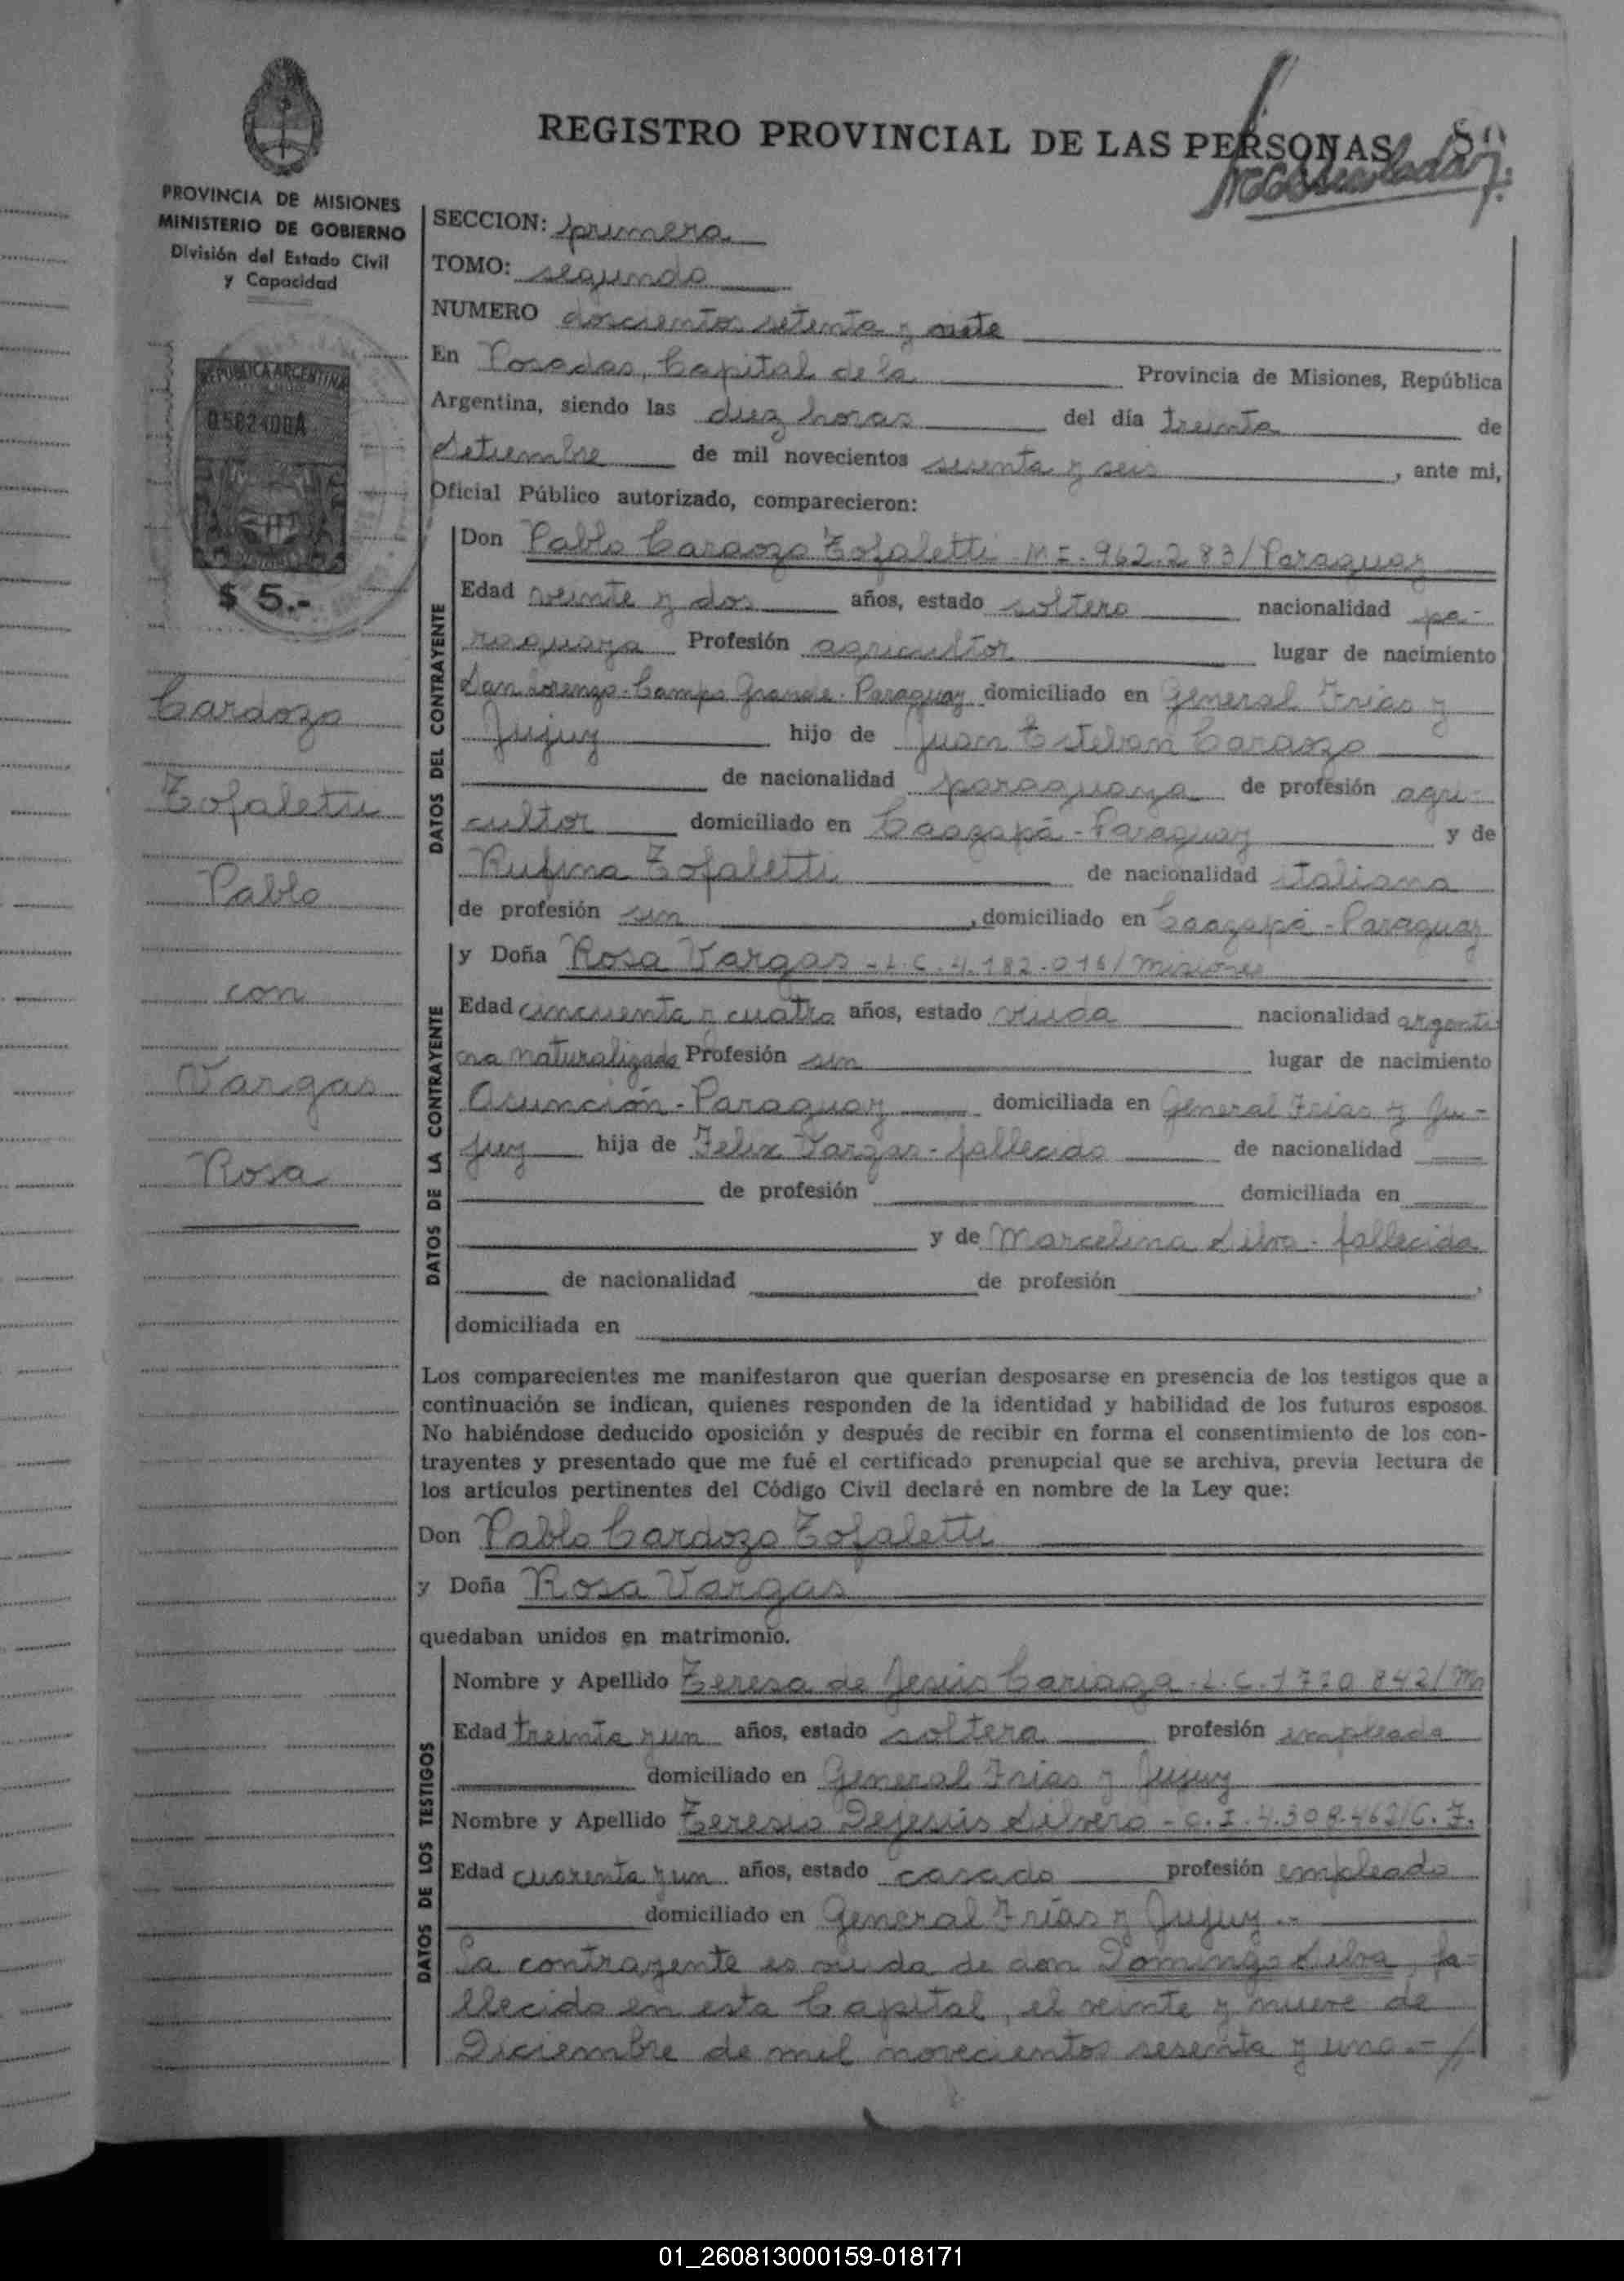 REGISTRO PROVINCIAL DE LAS PERSONAS
PROVINCIA DE MISIONES
MINISTERIO DE GOBIERNO
División del Estado Civil
y Capacidad
REPUBLICA ARGENTINA
$ 5.-
Cardozo
Tofaletti
Pablo
con
Vargas
Rosa
SECCION: primera
TOMO: segundo
NUMERO doscientos setenta y siete
En Posadas, Capital de la Provincia de Misiones, República
Argentina, siendo las diez horas del día treinta de
setiembre de mil novecientos sesenta y seis, ante mi,
Oficial Público autorizado, comparecieron:
DATOS DEL CONTRAYENTE
Don Pablo Cardozo Tofaletti - M I - 962.283/Paraguay
Edad veinte y dos años, estado soltero nacionalidad pa-
raguaya Profesión agricultor lugar de nacimiento
San Lorenzo - Campo Grande - Paraguay domiciliado en General Frias y
Jujuy hijo de Juan Esteban Cardozo
de nacionalidad paraguaya de profesión agri-
cultor domiciliado en Caazapá - Paraguay y de
Rufina Tofaletti de nacionalidad italiana
de profesión sin, domiciliado en Caazapá - Paraguay
DATOS DE LA CONTRAYENTE
y Doña Rosa Vargas - L C. 4.182.016/Misiones
Edad cincuenta y cuatro años, estado viuda nacionalidad argenti
na naturalizada Profesión sin lugar de nacimiento
Asunción - Paraguay domiciliada en General Frias y Ju-
juy hija de Felix Vargas - fallecido de nacionalidad
de profesión domiciliada en
y de Marcelina Silva - fallecida
de nacionalidad de profesión
domiciliada en
Los comparecientes me manifestaron que querían desposarse en presencia de los testigos que a
continuación se indican, quienes responden de la identidad y habilidad de los futuros esposos.
No habiéndose deducido oposición y después de recibir en forma el consentimiento de los con-
trayentes y presentado que me fué el certificado prenupcial que se archiva, previa lectura de
los artículos pertinentes del Código Civil declaré en nombre de la Ley que:
Don Pablo Cardozo Tofaletti
y Doña Rosa Vargas
quedaban unidos en matrimonio.
DATOS DE LOS TESTIGOS
Nombre y Apellido Teresa de Jesús Cariaga - L. C. 1770 842/M
Edad treinta y un años, estado soltera profesión empleada
domiciliado en General Frias y Jujuy
Nombre y Apellido Teresio Dejesús Silvero - C. I. 4.308.462/C. F.
Edad cuarenta y un años, estado casado profesión empleado
domiciliado en General Frias y Jujuy -
La contrayente es viuda de don Domingo Silva, fa-
llecido en esta Capital, el veinte y nueve de
Diciembre de mil novecientos sesenta y uno.-/
01_260813000159-018171